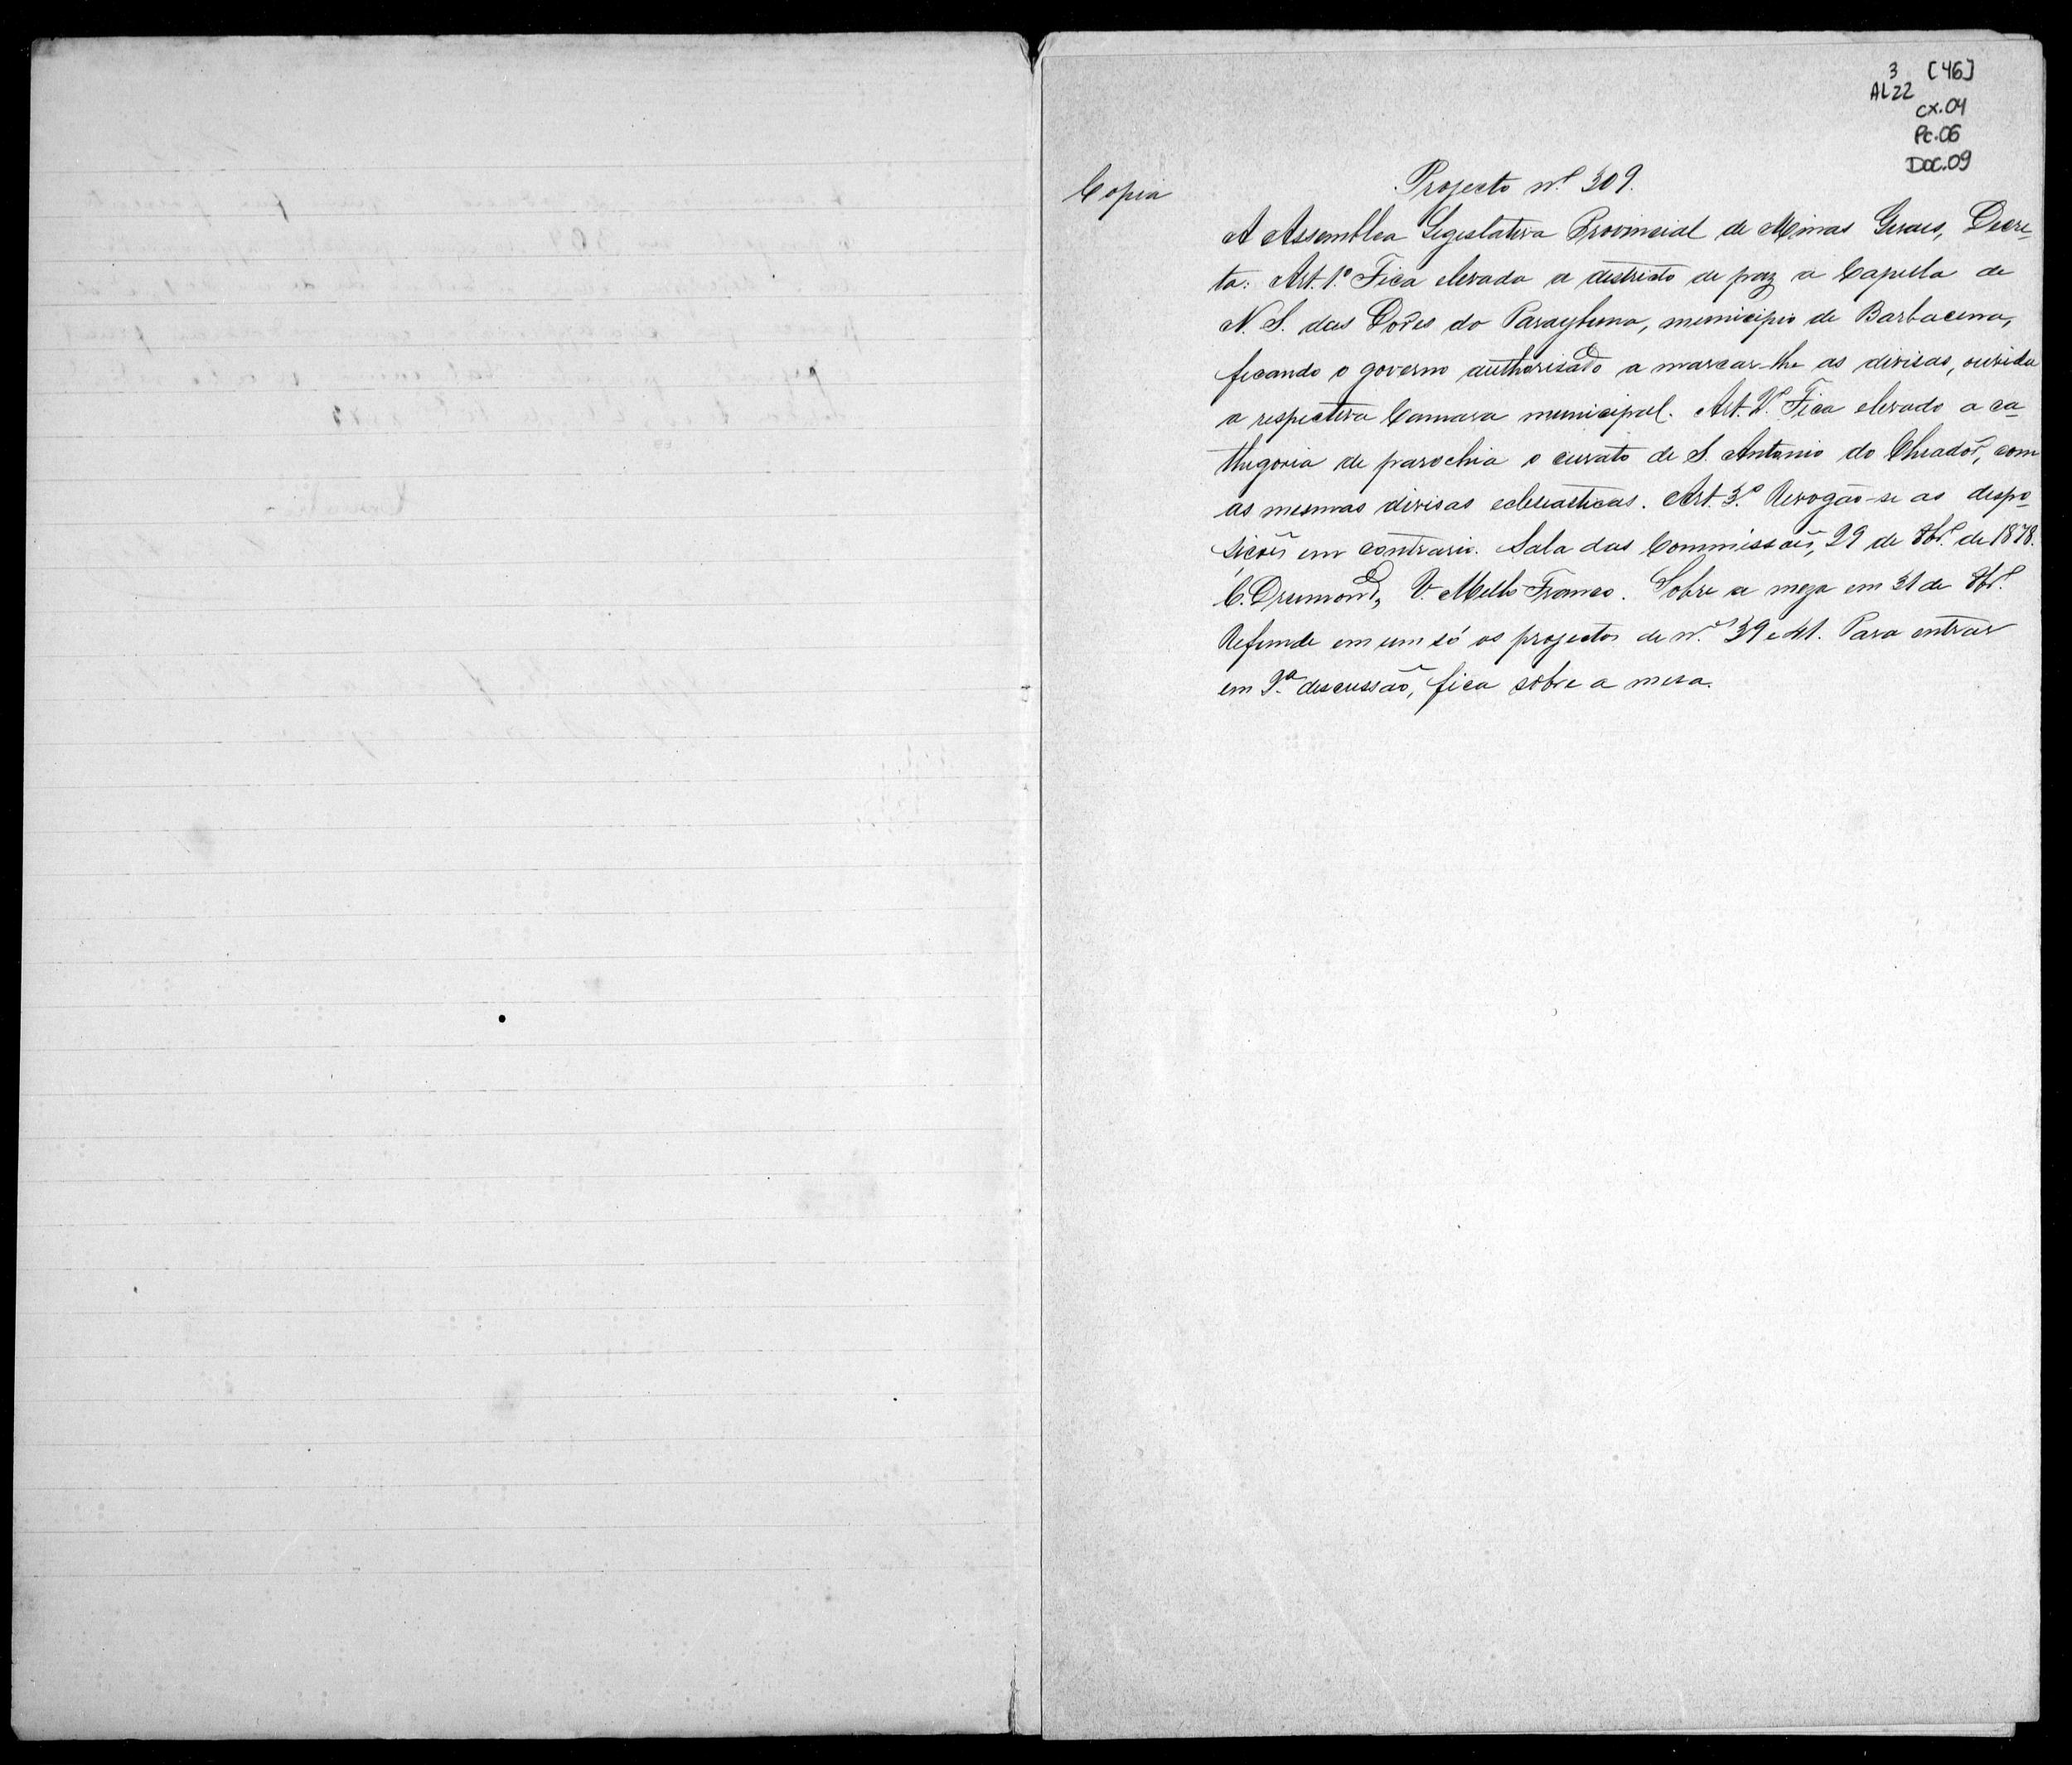 3 [46]
AL22
cx.04
Pc.06
Doc.09
Copia
Projecto n.º 309.
A Assemblea Legislativa Provincial de Minas Geraes, Decre-
ta: Art. 1.º Fica elevada a districto de paz a Capella de
N. S. das Dores do Parahybuna, municipio de Barbacena,
ficando o governo authorisado a marcar-lhe as divisas, ouvida
a respectiva Camara municipal. Art. 2.º Fica elevado a ca-
thegoria de parochia o curato de S. Antonio do Chiador, com
as mesmas divisas ecclesiasticas. Art. 3.º Revogão-se as dispo-
sições em contrario. Sala das Commissões, 29 de de 1878.
C. Drumond, V. Mello Franco. Sobre a meza em 31 de
Refunde em um só os projectos de n.ºs 39 e 41. Para entrar
em discussão, fica sobre a mesa.